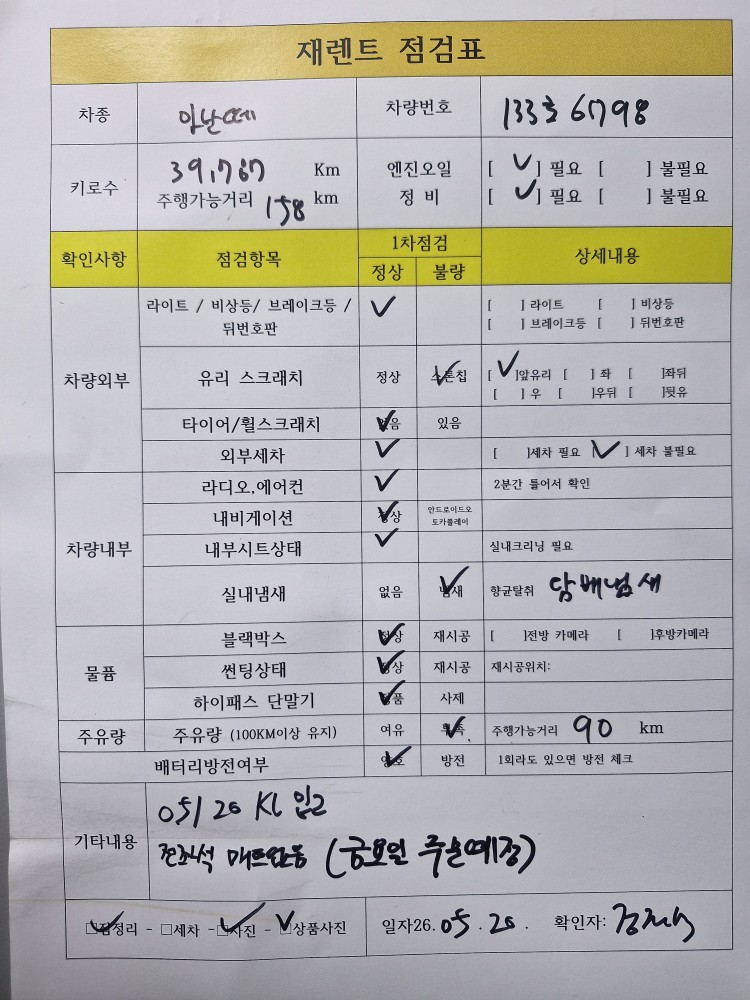 재렌트 점검표
차종 아반떼 차량번호 133호 6798
키로수 39,767 Km 엔진오일 [ ✓ ] 필요 [ ] 불필요
주행가능거리 158 km 정 비 [ ✓ ] 필요 [ ] 불필요
확인사항 점검항목 1차점검 상세내용
정상 불량
차량외부
라이트 / 비상등/ 브레이크등 / ✓ [ ] 라이트 [ ] 비상등
뒤번호판 [ ] 브레이크등 [ ] 뒤번호판
유리 스크래치 정상 스톤칩 ✓ [ ✓ ]앞유리 [ ] 좌 [ ]좌뒤
[ ] 우 [ ]우뒤 [ ]뒷유
타이어/휠스크래치 없음 ✓ 있음
외부세차 ✓ [ ]세차 필요 [ ✓ ] 세차 불필요
차량내부
라디오,에어컨 ✓ 2분간 틀어서 확인
내비게이션 정상 ✓ 안드로이드오
토카플레이
내부시트상태 ✓ 실내크리닝 필요
실내냄새 없음 냄새 ✓ 향균탈취 담배냄새
물품
블랙박스 정상 ✓ 재시공 [ ]전방 카메라 [ ]후방카메라
썬팅상태 정상 ✓ 재시공 재시공위치:
하이패스 단말기 정품 ✓ 사제
주유량 주유량 (100KM이상 유지) 여유 부족 ✓ 주행가능거리 90 km
배터리방전여부 양호 ✓ 방전 1회라도 있으면 방전 체크
기타내용
05/20 KL 입고
매트없음 (금요일 출예정)
□짐정리 ✓ - □세차 - □사진 ✓ - □상품사진 ✓ 일자26. 05 . 20 . 확인자: